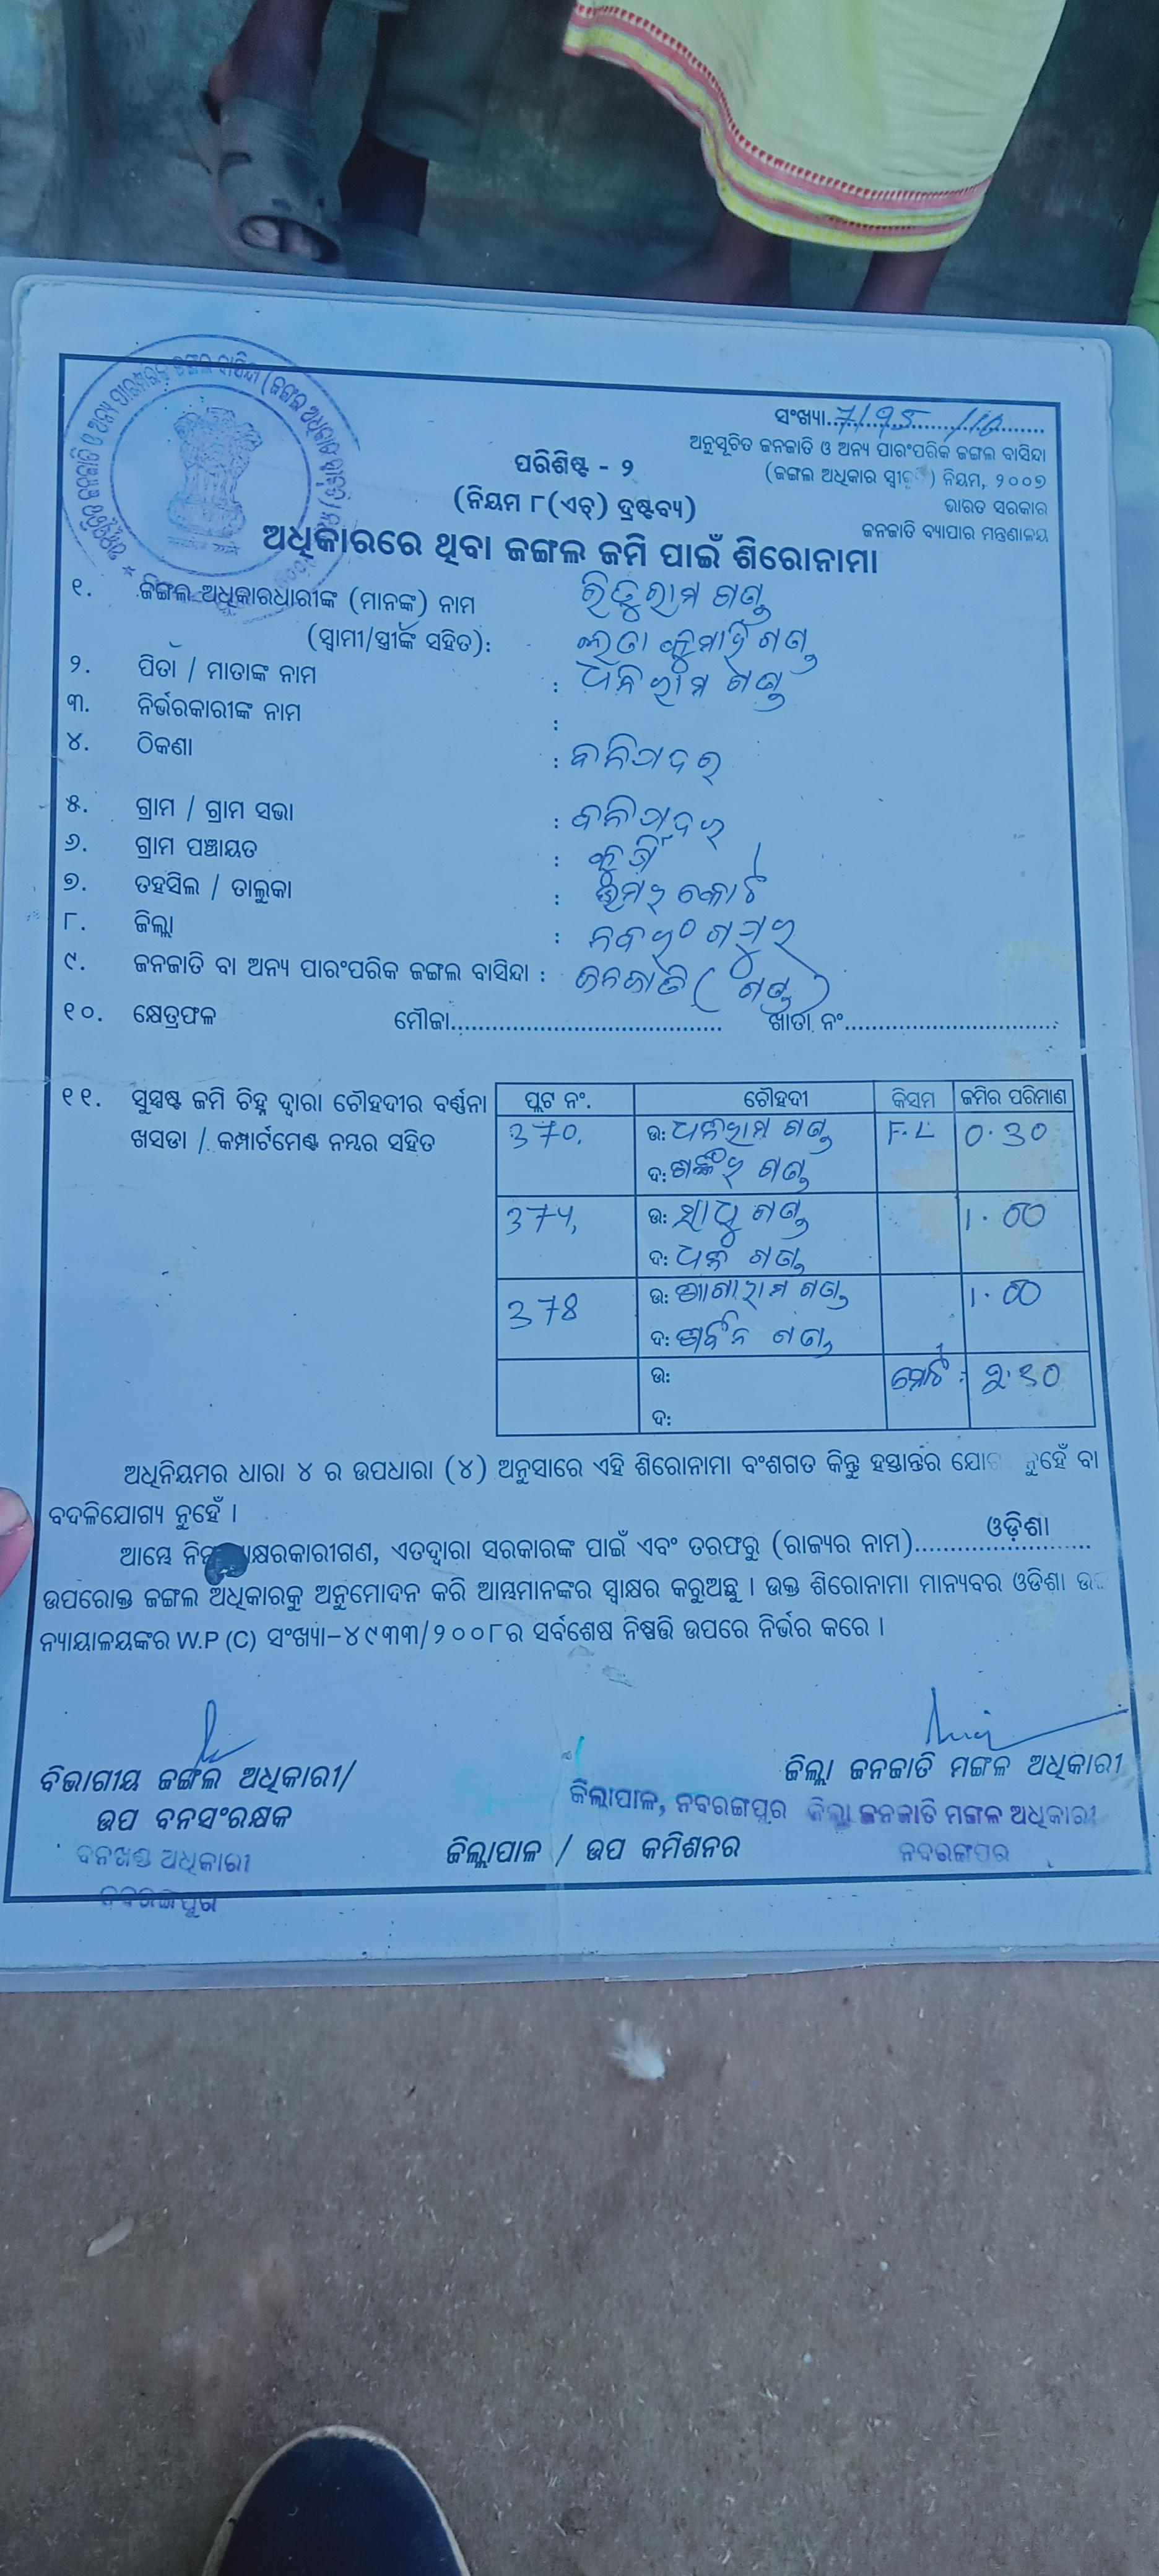 ସଂଖ୍ୟା.7195/10
ଅନୁସୂଚିତ ଜନଜାତି ଓ ଅନ୍ୟ ପାରଂପରିକ ଜଙ୍ଗଲ ବାସିନ୍ଦା
(ଜଙ୍ଗଲ ଅଧିକାର ସ୍ୱୀକୃତି) ନିୟମ, ୨୦୦୭
ଭାରତ ସରକାର
ଜନଜାତି ବ୍ୟାପାର ମନ୍ତ୍ରଣାଳୟ
ପରିଶିଷ୍ଟ - ୨
(ନିୟମ ୮(ଏଚ୍) ଦ୍ରଷ୍ଟବ୍ୟ)
ଅଧିକାରରେ ଥିବା ଜଙ୍ଗଲ ଜମି ପାଇଁ ଶିରୋନାମା
୧. ଜଙ୍ଗଲ ଅଧିକାରଧାରୀଙ୍କ (ମାନଙ୍କ) ନାମ ଗଣ୍ଡ
(ସ୍ୱାମୀ/ସ୍ତ୍ରୀଙ୍କ ସହିତ): ଲତା କୁମାରୀ ଗଣ୍ଡ
୨. ପିତା / ମାତାଙ୍କ ନାମ : ଧନିରାମ ଗଣ୍ଡ
୩. ନିର୍ଭରକାରୀଙ୍କ ନାମ :
୪. ଠିକଣା : ବାନିଗଦର
୫. ଗ୍ରାମ / ଗ୍ରାମ ସଭା :
୬. ଗ୍ରାମ ପଞ୍ଚାୟତ :
୭. ତହସିଲ / ତାଲୁକା : ଉମରକୋଟ
୮. ଜିଲ୍ଲା : ନବରଂଗପୁର
୯. ଜନଜାତି ବା ଅନ୍ୟ ପାରଂପରିକ ଜଙ୍ଗଲ ବାସିନ୍ଦା : ଜନଜାତି (ଗଣ୍ଡ)
୧୦. କ୍ଷେତ୍ରଫଳ ମୌଜା.......... ଖାତା ନଂ..........
୧୧. ସୁସ୍ପଷ୍ଟ ଜମି ଚିହ୍ନ ଦ୍ୱାରା ଚୌହଦୀର ବର୍ଣ୍ଣନା
ଖସଡା / କମ୍ପାର୍ଟମେଣ୍ଟ ନମ୍ବର ସହିତ
ପ୍ଲଟ ନଂ. ଚୌହଦୀ କିସମ ଜମିର ପରିମାଣ
370. ଉ: ଧନିରାମ ଗଣ୍ଡ F.L 0.30
ଦ: ଗଣ୍ଡ
374, ଉ: ସାଧୁ ଗଣ୍ଡ 1.00
ଦ: ଧନ ଗଣ୍ଡ
378 ଉ: ଗଣ୍ଡ 1.00
ଦ: ଗଣ୍ଡ
ଉ: ମୋଟ : 2.30
ଦ:
ଅଧିନିୟମର ଧାରା ୪ ର ଉପଧାରା (୪) ଅନୁସାରେ ଏହି ଶିରୋନାମା ବଂଶଗତ କିନ୍ତୁ ହସ୍ତାନ୍ତର ଯୋଗ୍ୟ ନୁହେଁ ବା
ବଦଳିଯୋଗ୍ୟ ନୁହେଁ ।
ଆମ୍ଭେ ନିମ୍ନ ସ୍ୱାକ୍ଷରକାରୀଗଣ, ଏତଦ୍ୱାରା ସରକାରଙ୍କ ପାଇଁ ଏବଂ ତରଫରୁ (ରାଜ୍ୟର ନାମ)..........ଓଡ଼ିଶା
ଉପରୋକ୍ତ ଜଙ୍ଗଲ ଅଧିକାରକୁ ଅନୁମୋଦନ କରି ଆମ୍ଭମାନଙ୍କର ସ୍ୱାକ୍ଷର କରୁଅଛୁ । ଉକ୍ତ ଶିରୋନାମା ମାନ୍ୟବର ଓଡିଶା ଉଚ୍ଚ
ନ୍ୟାୟାଳୟଙ୍କର W.P (C) ସଂଖ୍ୟା-୪୯୩୩/୨୦୦୮ର ସର୍ବଶେଷ ନିଷ୍ପତ୍ତି ଉପରେ ନିର୍ଭର କରେ ।
ବିଭାଗୀୟ ଜଙ୍ଗଲ ଅଧିକାରୀ/
ଉପ ବନସଂରକ୍ଷକ
ବନଖଣ୍ଡ ଅଧିକାରୀ
ନବରଙ୍ଗପୁର
ଜିଲ୍ଲାପାଳ, ନବରଙ୍ଗପୁର
ଜିଲ୍ଲାପାଳ / ଉପ କମିଶନର
ଜିଲ୍ଲା ଜନଜାତି ମଙ୍ଗଳ ଅଧିକାରୀ
ଜିଲ୍ଲା ଜନଜାତି ମଙ୍ଗଳ ଅଧିକାରୀ
ନବରଙ୍ଗପୁର